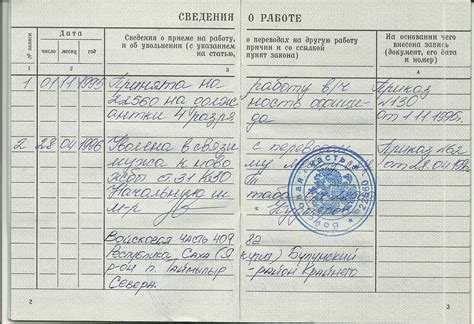 СВЕДЕНИЯ О РАБОТЕ
№ записи
Дата
число месяц год
Сведения о приеме на работу, о переводах на другую работу
и об увольнении (с указанием причин и со ссылкой
на статью, пункт закона)
На основании чего внесена запись (документ, его дата и номер)
1 2 3 4
1 01 11 1995 Принята на работу в/ч Приказ
22560 на должность официантки №130
4 разряда от 1.11.1995.
2 28 04 1996 Уволена в связи с переводом Приказ №62
мужа к новому от 28.04.
службы
Начальник штаба
м-р
войсковая часть
Войсковая часть 40982
Республика Саха (Якутия) Булунский
р-он п. Таймылыр - район Крайнего
Севера.
2 3